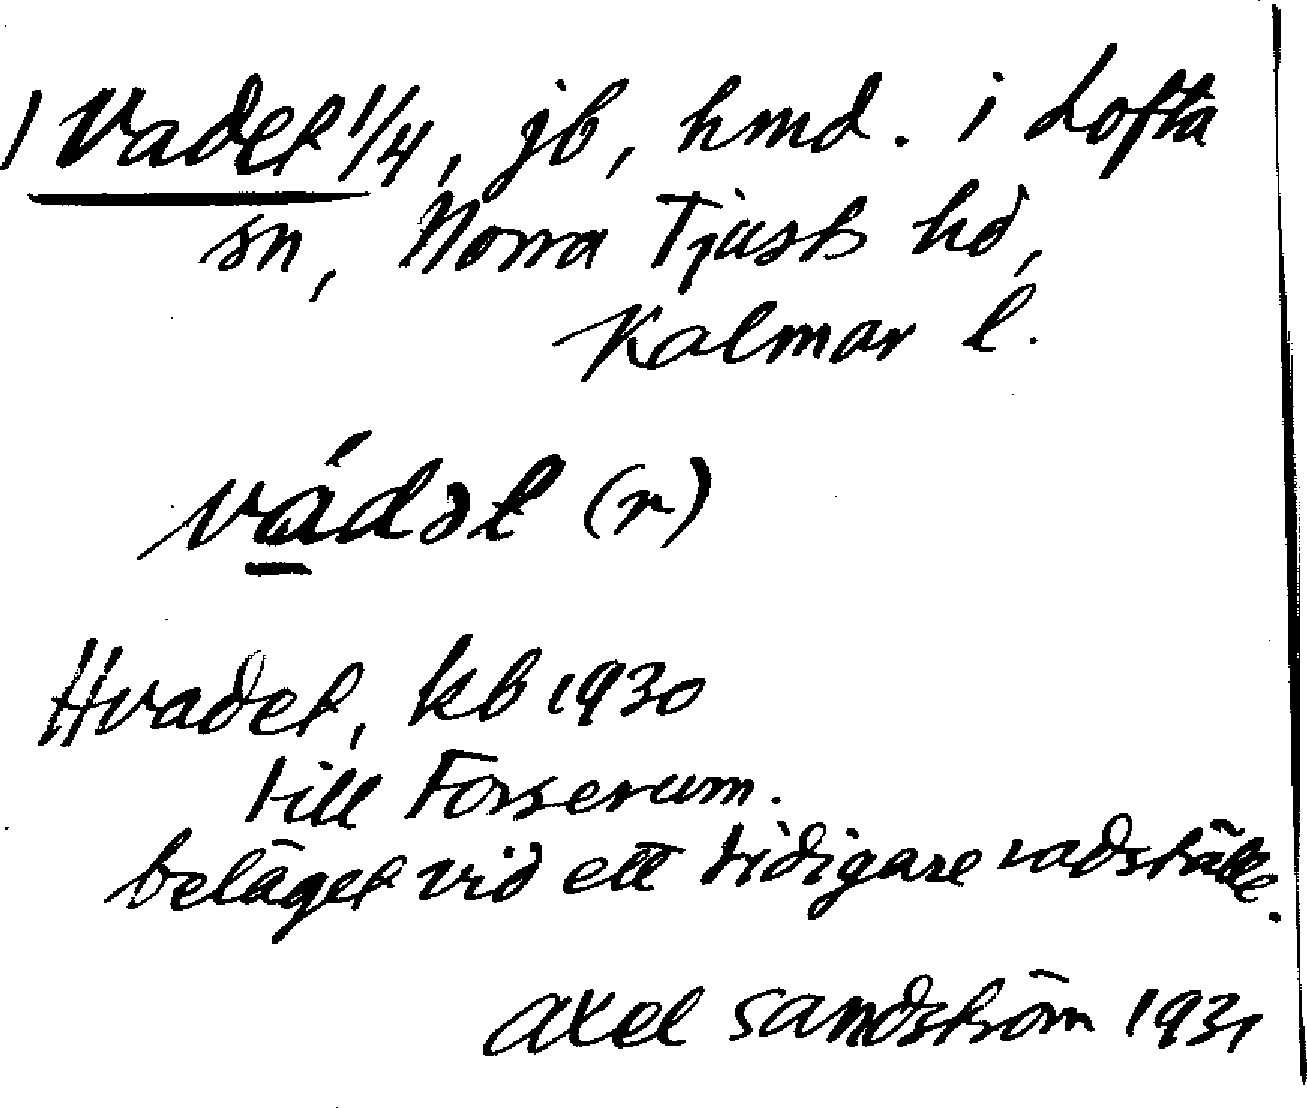 1 Vadet 1/4, jb, hmd. i Lofta
sn, Norra Tjusts hd,
Kalmar l.
vádət (n)
Hvadet, kb 1930
till Forserum.
beläget vid ett tidigare vadställe.
Axel Sandström 1931